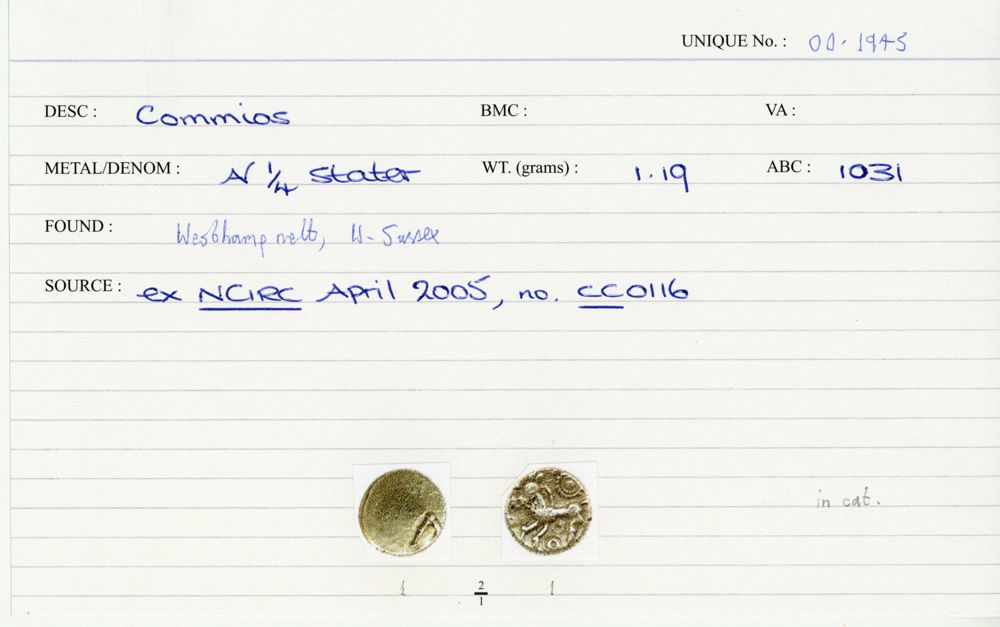 UNIQUE No. : 00.1945
DESC : Commios BMC : VA :
METAL/DENOM : AV 1/4 Stater WT. (grams) : 1.19 ABC : 1031
FOUND : Westhampnett, W. Sussex
SOURCE : ex NCIRC April 2005, no. CC0116
in cat.
1 2/1 1